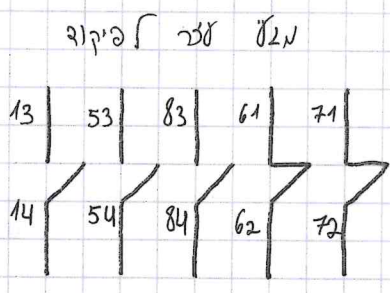 מגעי עזר לפיקוד
13 53 83 61 71
14 54 84 62 72